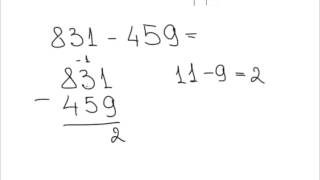 831 - 459 =
-1
831
- 459
2
11 - 9 = 2